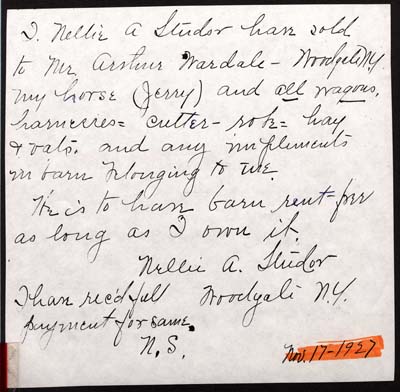 I. Nellie A Studor have sold
to Mr. Arthur Wardale - Woodgate N.Y.
my horse (Jerry) and all wagons,
harnesses = cutter - robe = hay
& oats. and any impliments
in barn belonging to me.
He is to have barn rent-free
as long as I own it.
Nellie A. Studor
Woodgate N.Y.
I have rec'd full
payment for same.
N.S.
Nov. 17-1927